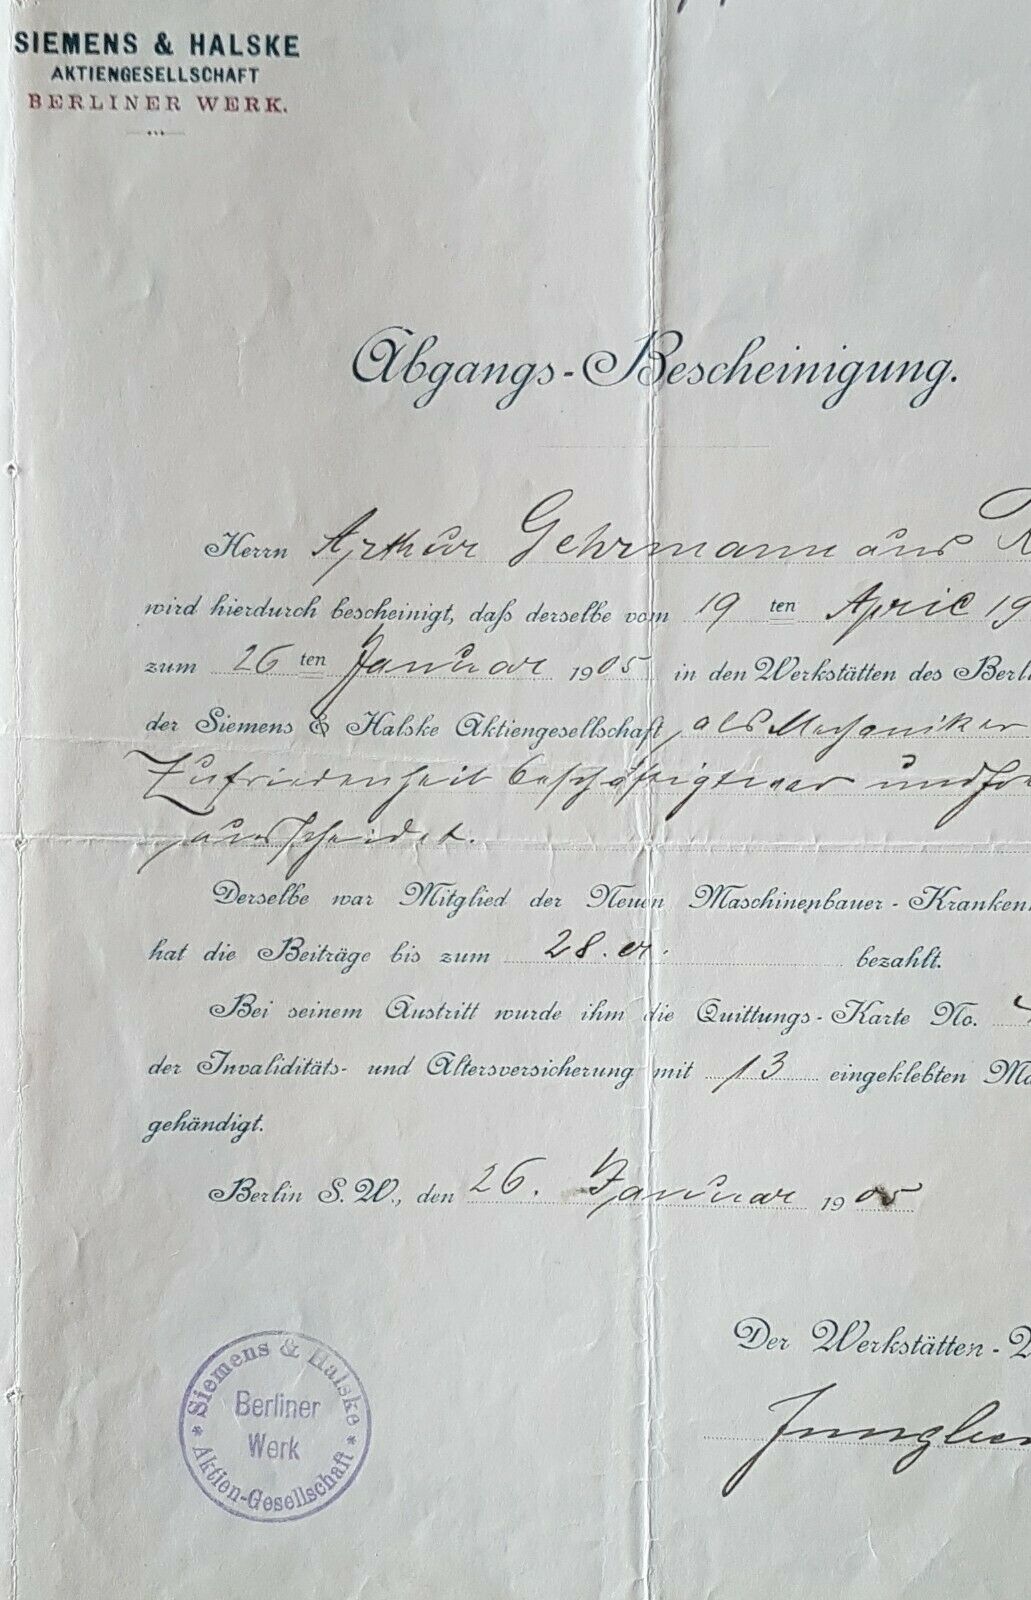 SIEMENS & HALSKE
AKTIENGESELLSCHAFT
BERLINER WERK.
Abgangs-Bescheinigung.
Herrn Arthur Gehrmann aus
wird hierdurch bescheinigt, daß derselbe vom 19 ten April 19
zum 26 ten Januar 1905 in den Werkstätten des Berli
der Siemens & Halske Aktiengesellschaft, als Mechaniker
Zufriedenheit beschäftigt war und
ausscheidet.
Derselbe war Mitglied der Neuen Maschinenbauer-Kranken
hat die Beiträge bis zum 28. cr. bezahlt.
Bei seinem Austritt wurde ihm die Quittungs-Karte No.
der Invaliditäts- und Altersversicherung mit 13 eingeklebten Ma
gehändigt.
Berlin S.W., den 26. Januar 1905
Der Werkstätten-
Siemens & Halske
Berliner
Werk
* Aktien-Gesellschaft *